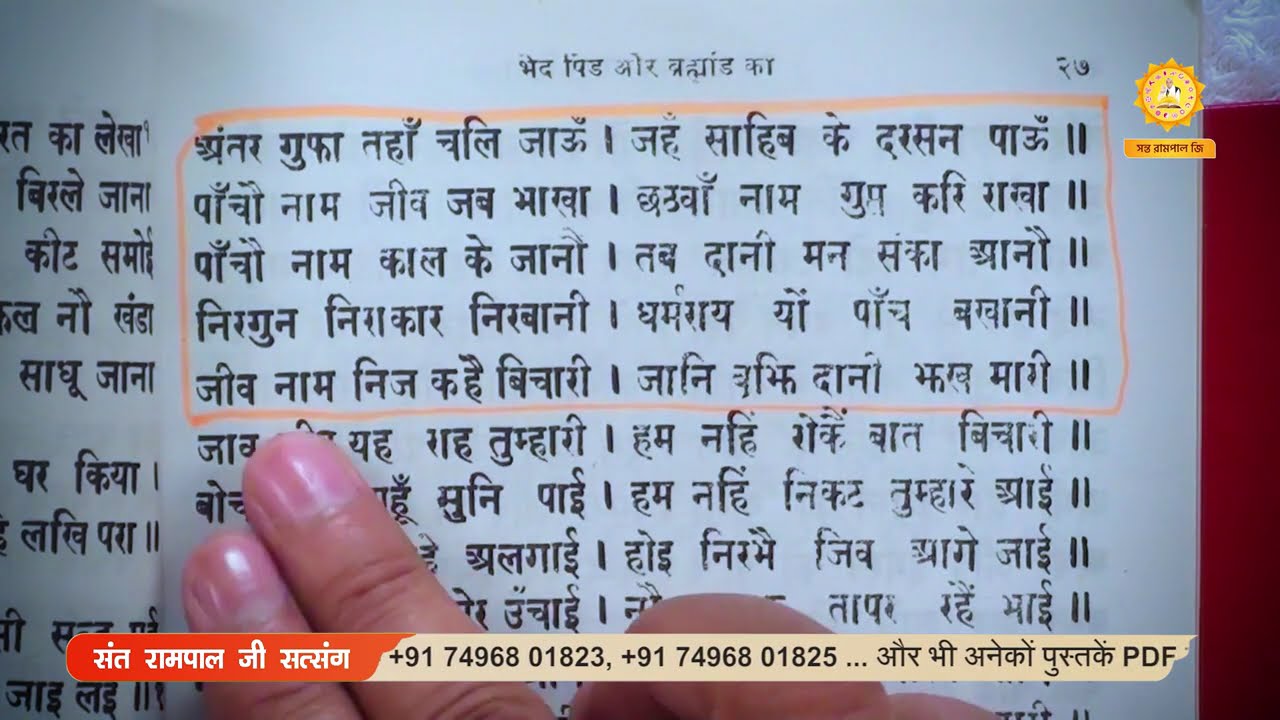 भेद पिंड और ब्रह्मांड का २७
सन्त रामपाल जि
रत का लेखा१
बिरले जाना
कीट समोई
नौ खंडा
साधू जाना
घर किया ।
लखि परा ॥
जाइ लई ॥१
अंतर गुफा तहाँ चलि जाऊँ । जहँ साहिब के दरसन पाऊँ ॥
पाँचौ नाम जीव जब भाखा । छठवाँ नाम गुप्त करि राखा ॥
पाँचौ नाम काल के जानौ । तब दानी मन संका आनौ ॥
निरगुन निराकार निरबानी । धर्मराय यों पाँच बखानी ॥
जीव नाम निज कहै बिचारी । जानि बूझि दानी झख मारी ॥
यह राह तुम्हारी । हम नहिं रोकैं बात बिचारी ॥
सुनि पाई । हम नहिं निकट तुम्हारे आई ॥
अलगाई । होइ निरभै जिव आगे जाई ॥
उँचाई । तापर रहैं भाई ॥
संत रामपाल जी सत्संग +91 74968 01823, +91 74968 01825 ... और भी अनेकों पुस्तकें PDF